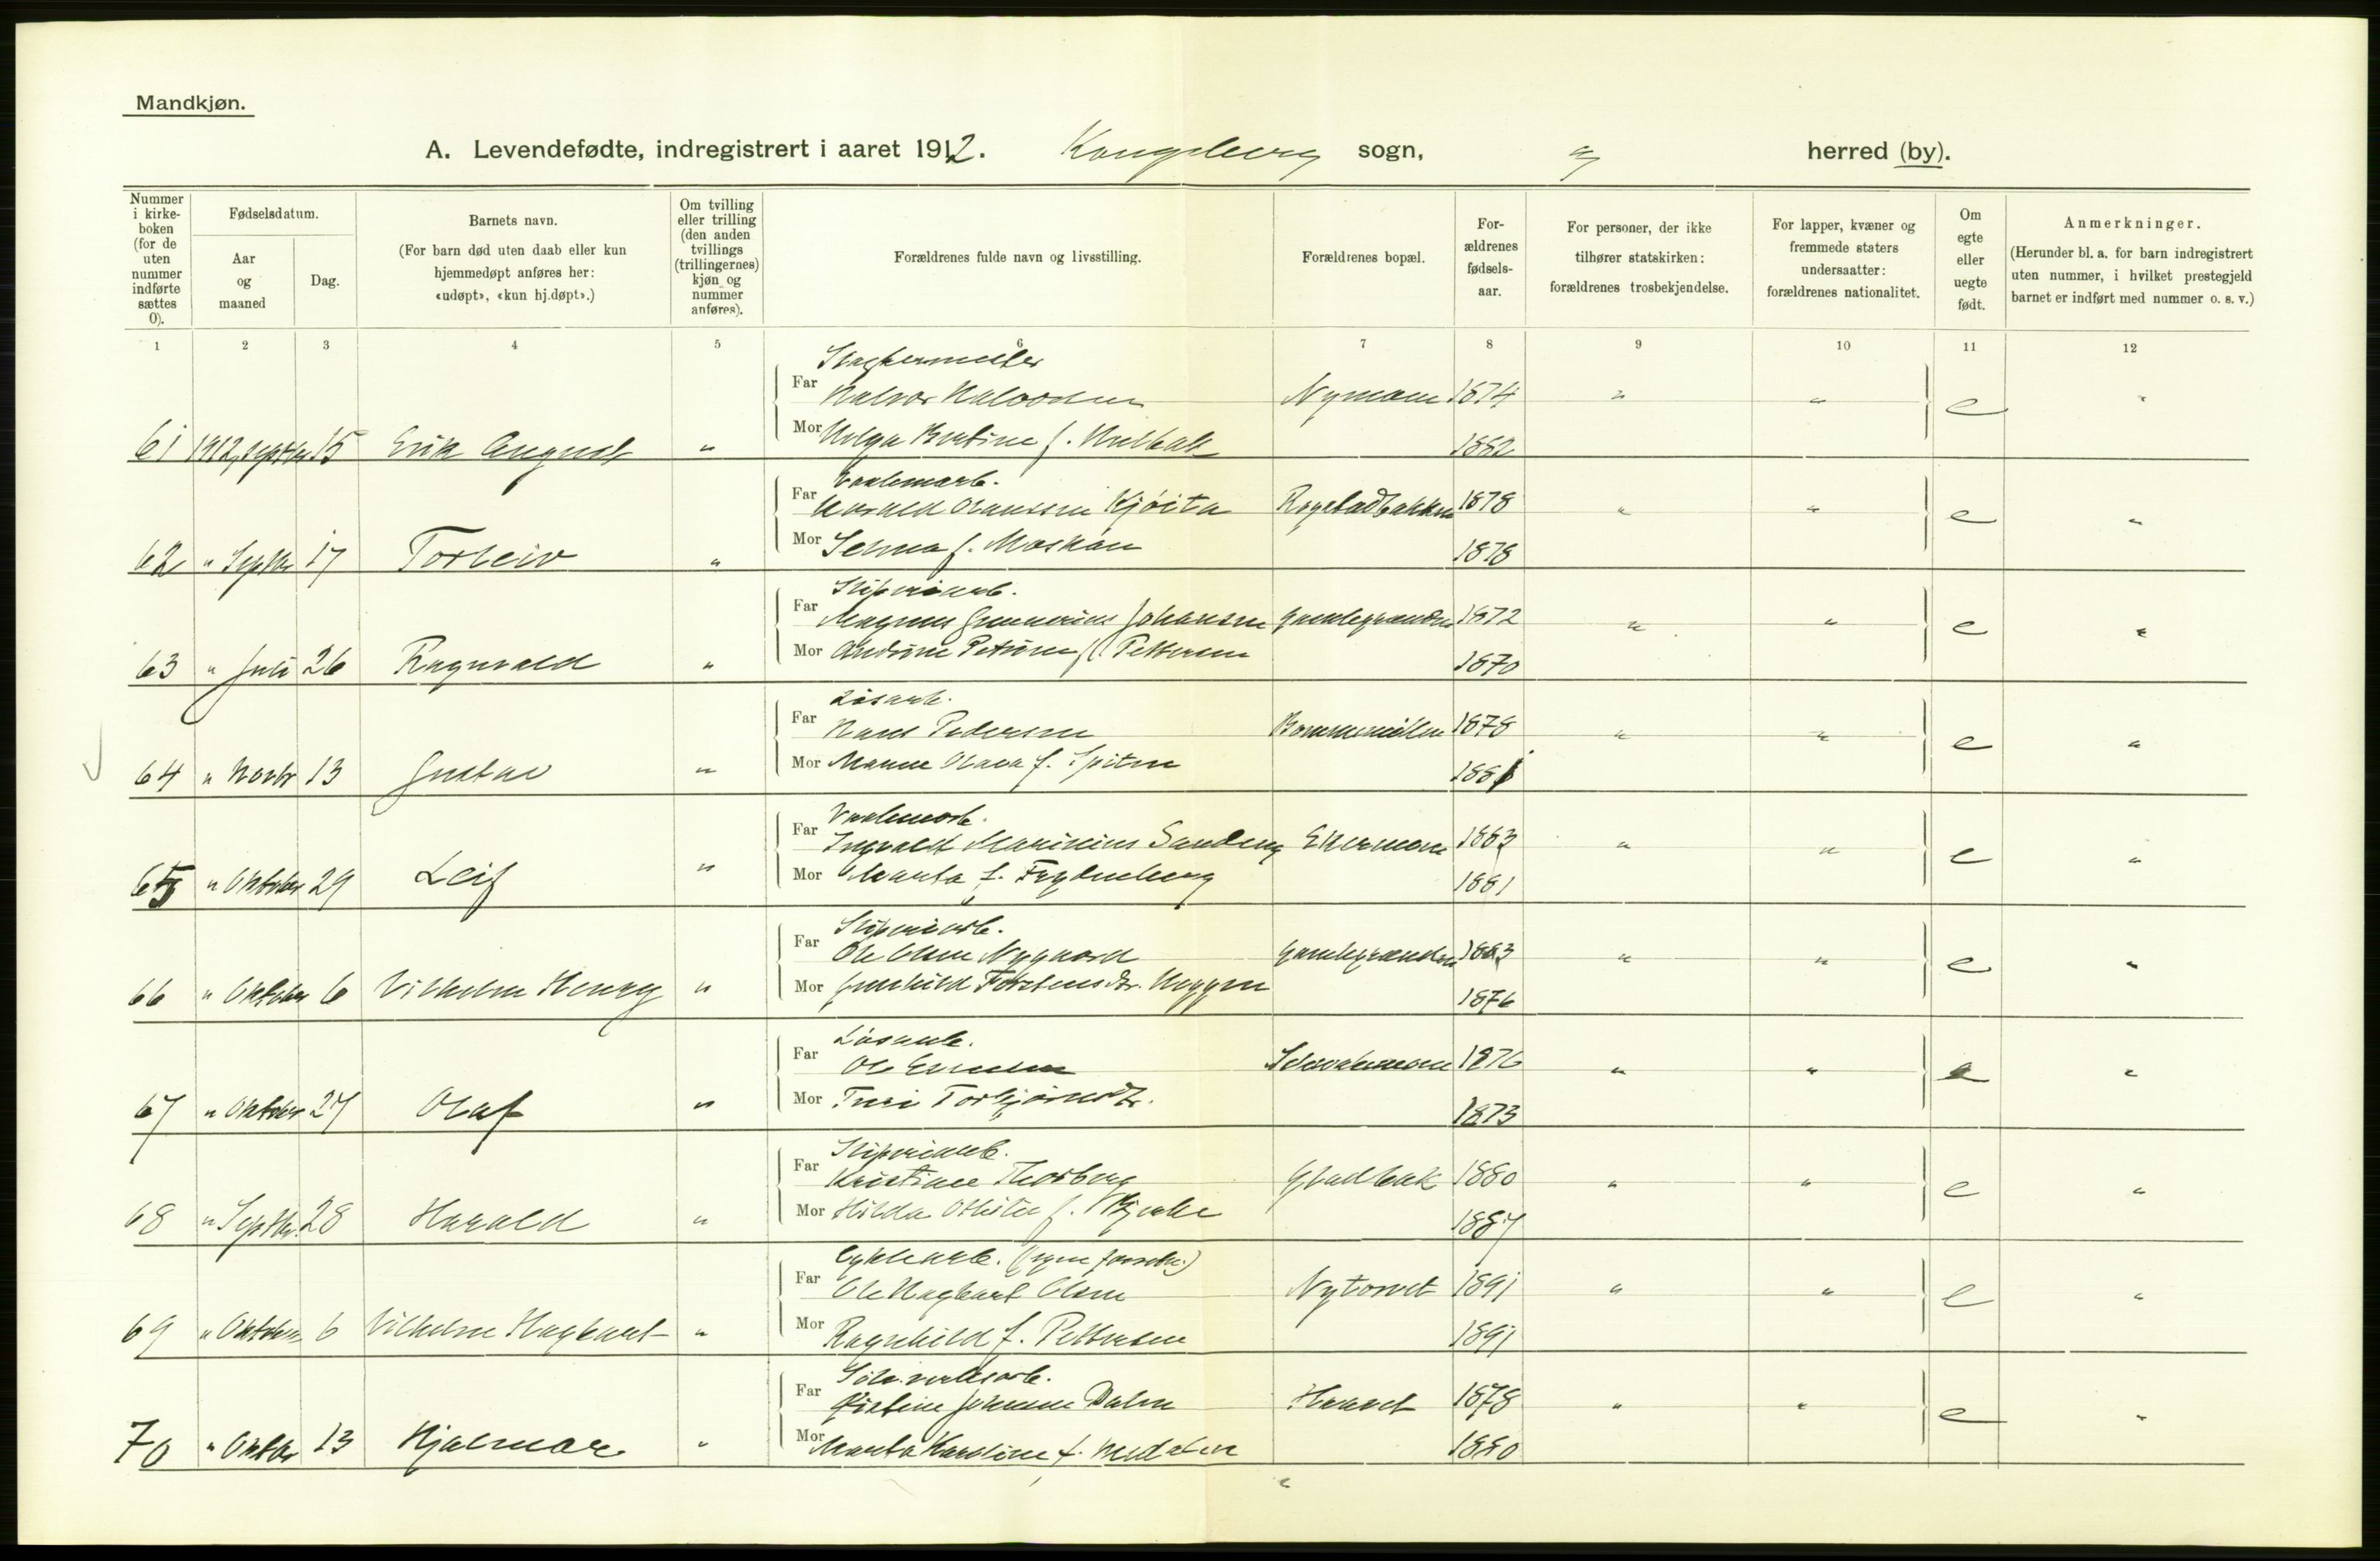 Mandkjøn.
A. Levendefødte, indregistrert i aaret 1912. Kongsberg sogn, " herred (by).
Nummer i kirke-boken (for de uten nummer indførte sættes 0).
Fødselsdatum.
Aar og maaned
Dag.
Barnets navn.
(For barn død uten daab eller kun hjemmedøpt anføres her: «udøpt», «kun hj.døpt».)
Om tvilling eller trilling (den anden tvillings (trillingernes) kjøn og nummer anføres).
Forældrenes fulde navn og livsstilling.
Forældrenes bopæl.
For-ældrenes fødsels-aar.
For personer, der ikke tilhører statskirken: forældrenes trosbekjendelse.
For lapper, kvæner og fremmede staters undersaatter: forældrenes nationalitet.
Om egte eller uegte født.
Anmerkninger.
(Herunder bl. a. for barn indregistrert uten nummer, i hvilket prestegjeld barnet er indført med nummer o. s. v.)
1 2 3 4 5 6 7 8 9 10 11 12
Slagtermester
Far Halvor Halvorsen Nymoen 1874 " " e "
61 1912, Septbr 15 Erik August " Mor Helga Bertine f. 1882
Far Harald Hanssen Kjöita Rogstadbakken 1878 " " e "
62 " Septbr 17 Torleiv " Mor Selma f. Moskau 1878
Slipriarb.
Far Magnus Gunnerius Johansen Gamlegrænden 1872 " " e "
63 " Juli 26 Ragnvald " Mor Andrine Petrine f. Pettersen 1870
Løsarb.
Far Hans Pedersen 1878 " " e "
64 " Novbr 13 Gustav " Mor Olava f. 1881
Far Ingvald Marinius Sandeng 1883 " " e "
65 " Oktober 29 Leif " Mor Marta f. Frydenberg 1881
Slipriarb.
Far Ole Olsen Nygaard Gamlegrænden 1883 " " e "
66 " Oktober 6 Vilhelm Henry " Mor Gunhild Torstensdr. Heggen 1876
Løsarb.
Far Ole 1876 " " e "
67 " Oktober 27 Olaf " Mor Turi Torbjörnsdtr. 1873
Slipriarb.
Far Kristian Thorberg Gladbak 1880 " " e "
68 " Septbr. 28 Harald " Mor Hilda Othilie f. 1887
Cyklearb.
Far Ole Hagbart Olsen Nytorvet 1891 " " e "
69 " Oktober 6 Vilhelm Hagbart " Mor Ragnhild f. Pettersen 1891
Sölvverksarb.
Far Johannes Dalen 1878 " " e "
70 " Oktbr 13 Hjalmar " Mor Marta Karoline f. 1880